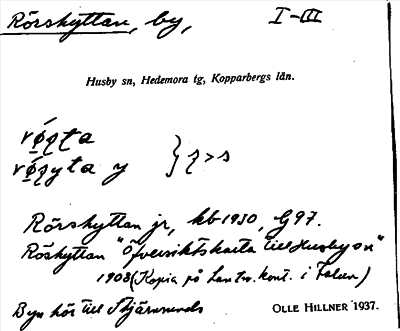 Rörshyttan, by, I-III
Husby sn, Hedemora tg, Kopparbergs län.
rǿʂta
rǿʂyta y } ʂ > s
Rörshyttan jr, kb 1930, G97.
Röshyttan "Öfversiktskarta till Husby sn"
1908 (Kopia på Lantm. kont. i Falun)
Byn hör till Stjärnsunds
OLLE HILLNER 1937.